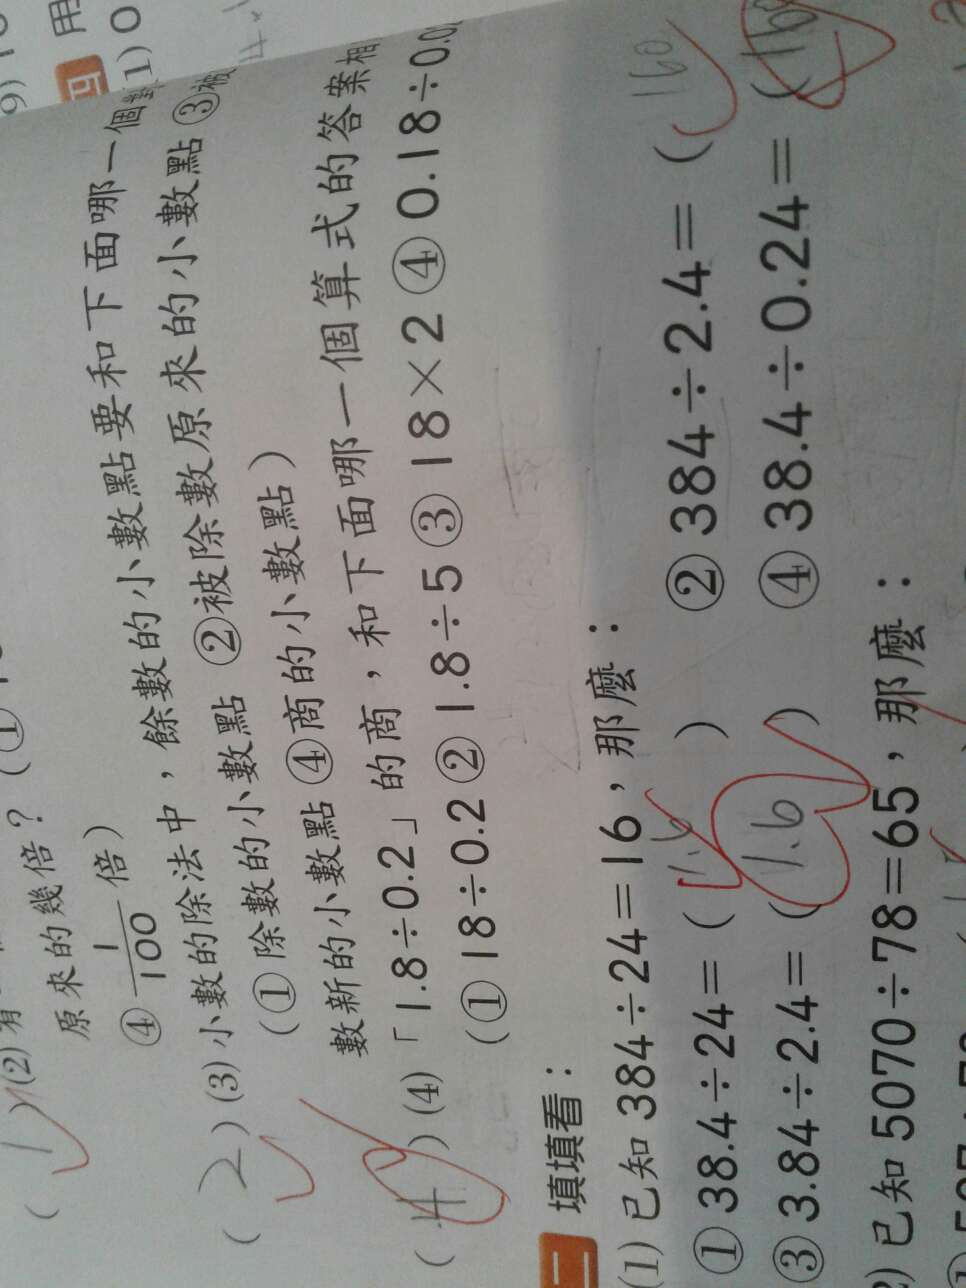 用
(1) 0
(1)(2)
原來的幾倍?(①
④ 1/100 倍)
(2)(3)小數的除法中,餘數的小數點要和下面哪一個
(①除數的小數點 ②被除數原來的小數點 ③被
數新的小數點 ④商的小數點)
(4)(4)「1.8÷0.2」的商,和下面哪一個算式的答案相
(①18÷0.2 ②1.8÷5 ③18×2 ④0.18÷0.0
二 填填看:
(1)已知384÷24=16,那麼:
①38.4÷24=(1.6) ②384÷2.4=(160
③3.84÷2.4=(1.6) ④38.4÷0.24=(160
)已知5070÷78=65,那麼: